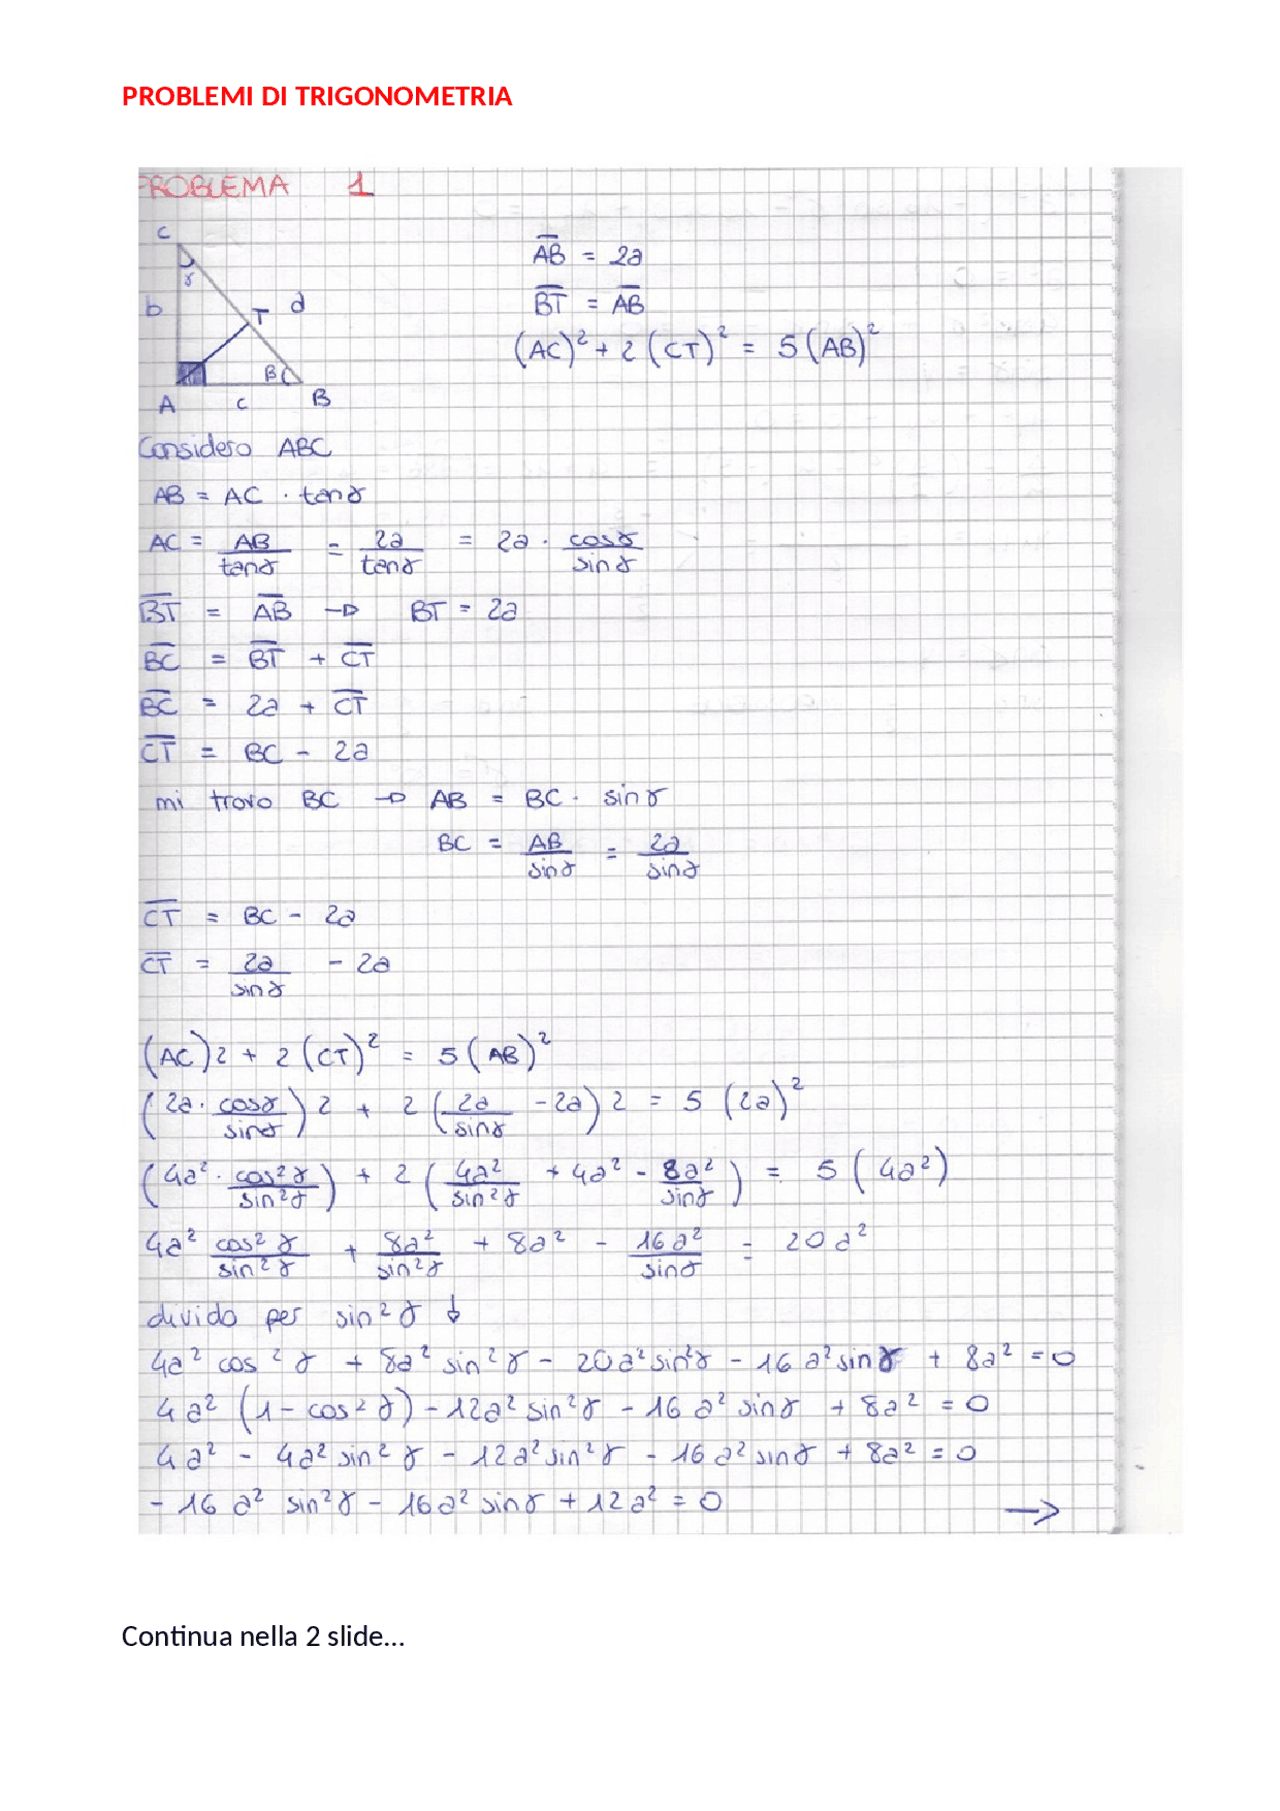 PROBLEMI DI TRIGONOMETRIA
PROBLEMA 1
C
γ
b
T
d
β
A
c
B
A̅B̅ = 2a
B̅T̅ = A̅B̅
(AC)² + 2 (CT)² = 5 (AB)²
Considero ABC
AB = AC · tanγ
AC = AB/tanγ = 2a/tanγ = 2a · cosγ/sinγ
B̅T̅ = A̅B̅ → BT = 2a
B̅C̅ = B̅T̅ + C̅T̅
B̅C̅ = 2a + C̅T̅
C̅T̅ = BC - 2a
mi trovo BC → AB = BC · sinγ
BC = AB/sinγ = 2a/sinγ
C̅T̅ = BC - 2a
C̅T̅ = 2a/sinγ - 2a
(AC)2 + 2 (CT)² = 5 (AB)²
(2a · cosγ/sinγ)2 + 2 (2a/sinγ - 2a)2 = 5 (2a)²
(4a² · cos²γ/sin²γ) + 2 (4a²/sin²γ + 4a² - 8a²/sinγ) = 5 (4a²)
4a² cos²γ/sin²γ + 8a²/sin²γ + 8a² - 16a²/sinγ = 20a²
divido per sin²γ ↓
4a² cos²γ + 8a² sin²γ - 20a² sin²γ - 16a² sinγ + 8a² = 0
4a² (1 - cos²γ) - 12a² sin²γ - 16a² sinγ + 8a² = 0
4a² - 4a² sin²γ - 12a² sin²γ - 16a² sinγ + 8a² = 0
- 16a² sin²γ - 16a² sinγ + 12a² = 0 →
Continua nella 2 slide…